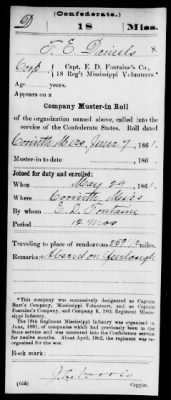 (Confederate.)
D 18 Miss.
T. E. Daniels
Corpl, Capt. E. D. Fontaine's Co.,
18 Reg't Mississippi Volunteers.*
Age years.
Appears on a
Company Muster-in Roll
of the organization named above, called into the
service of the Confederate States. Roll dated
Corinth Miss, June 7, 1861.
Muster-in to date , 186 .
Joined for duty and enrolled:
When May 24, 1861.
Where Corinth, Miss
By whom E. D. Fontaine
Period 12 mos
Traveling to place of rendezvous 259 1/2 miles.
Remarks: Absent on furlough
*This company was successively designated as Captain
Burt's Company, Mississippi Volunteers, and as Captain
Fontaine's Company, and Company K, 18th Regiment Mississippi
Infantry.
The 18th Regiment Mississippi Infantry was organized in
June, 1861, of companies which had previously been in the
State service and was mustered into the Confederate service
for twelve months. About April, 1862, the regiment was reorganized
for the war.
Book mark:
(635) Copyist.